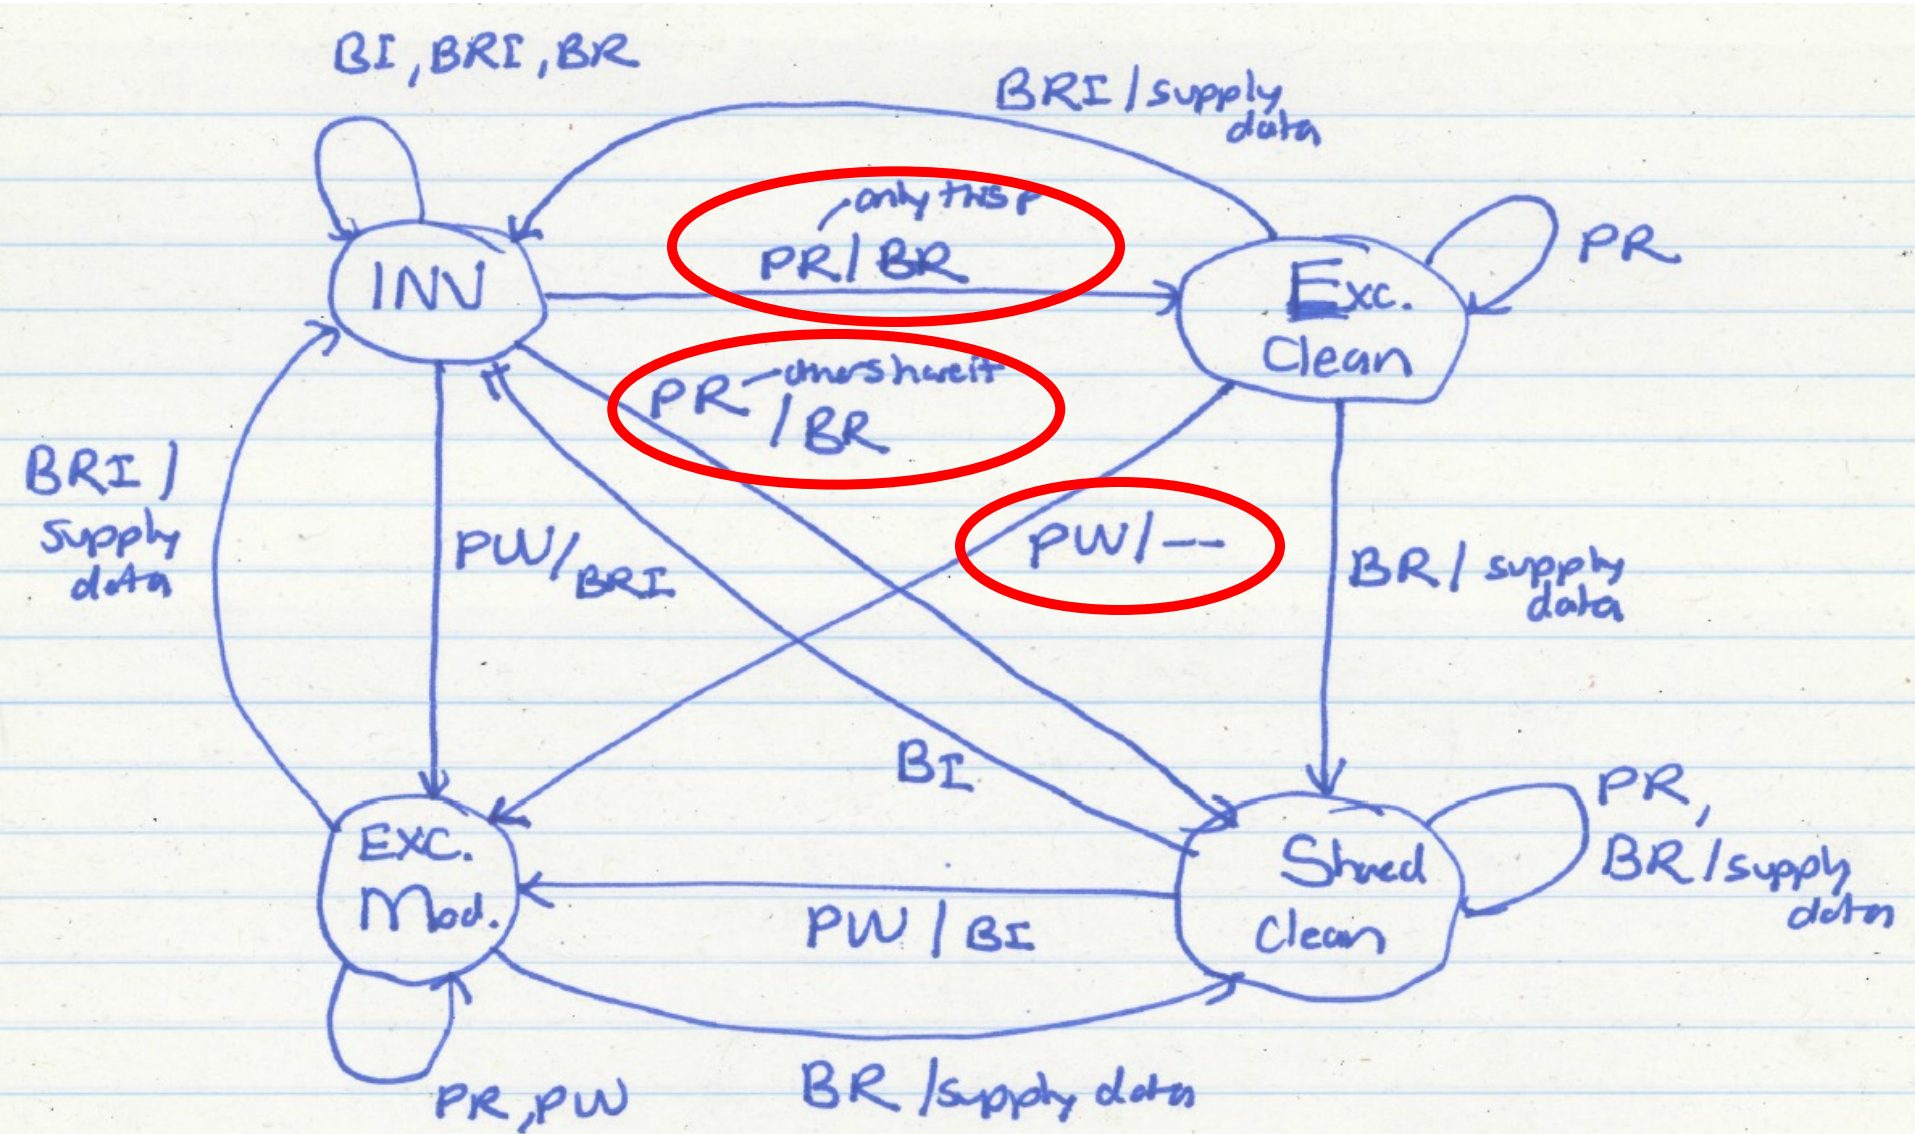 BI, BRI, BR
BRI / supply
data
only this P
PR / BR
INV
Exc.
Clean
PR
PR others have it
/ BR
BRI /
supply
data
PW / BRI
PW / --
BR / supply
data
BI
EXC.
Mod.
Shared
Clean
PR,
BR / supply
data
PW / BI
PR, PW
BR / supply data